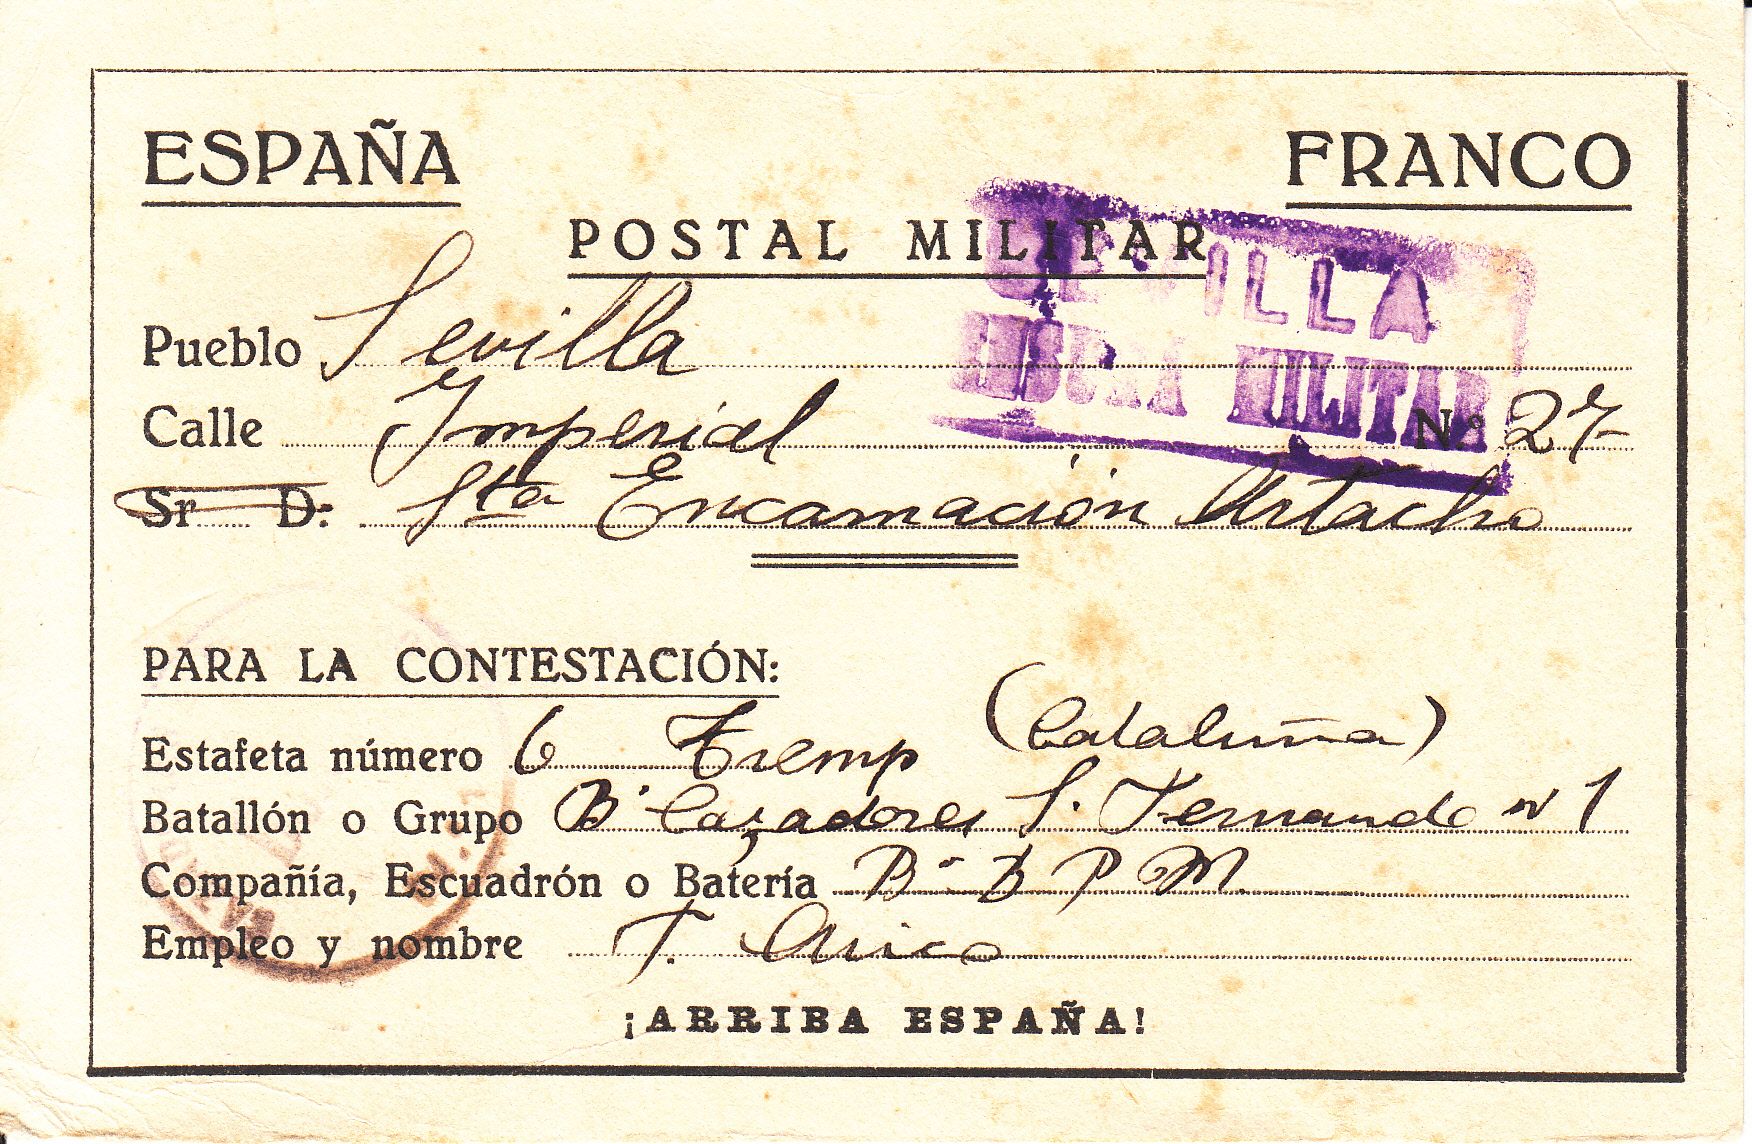 ESPAÑA FRANCO
POSTAL MILITAR
SEVILLA
CENSURA MILITAR
Pueblo Sevilla
Calle Imperial Nº 27
Sr D: Sta Encarnación Artacho
PARA LA CONTESTACIÓN:
Estafeta número 6 Tremp (Cataluña)
Batallón o Grupo B. Cazadores S. Fernando nº 1
Compañía, Escuadrón o Batería B. B P M.
Empleo y nombre T. Chico
¡ARRIBA ESPAÑA!